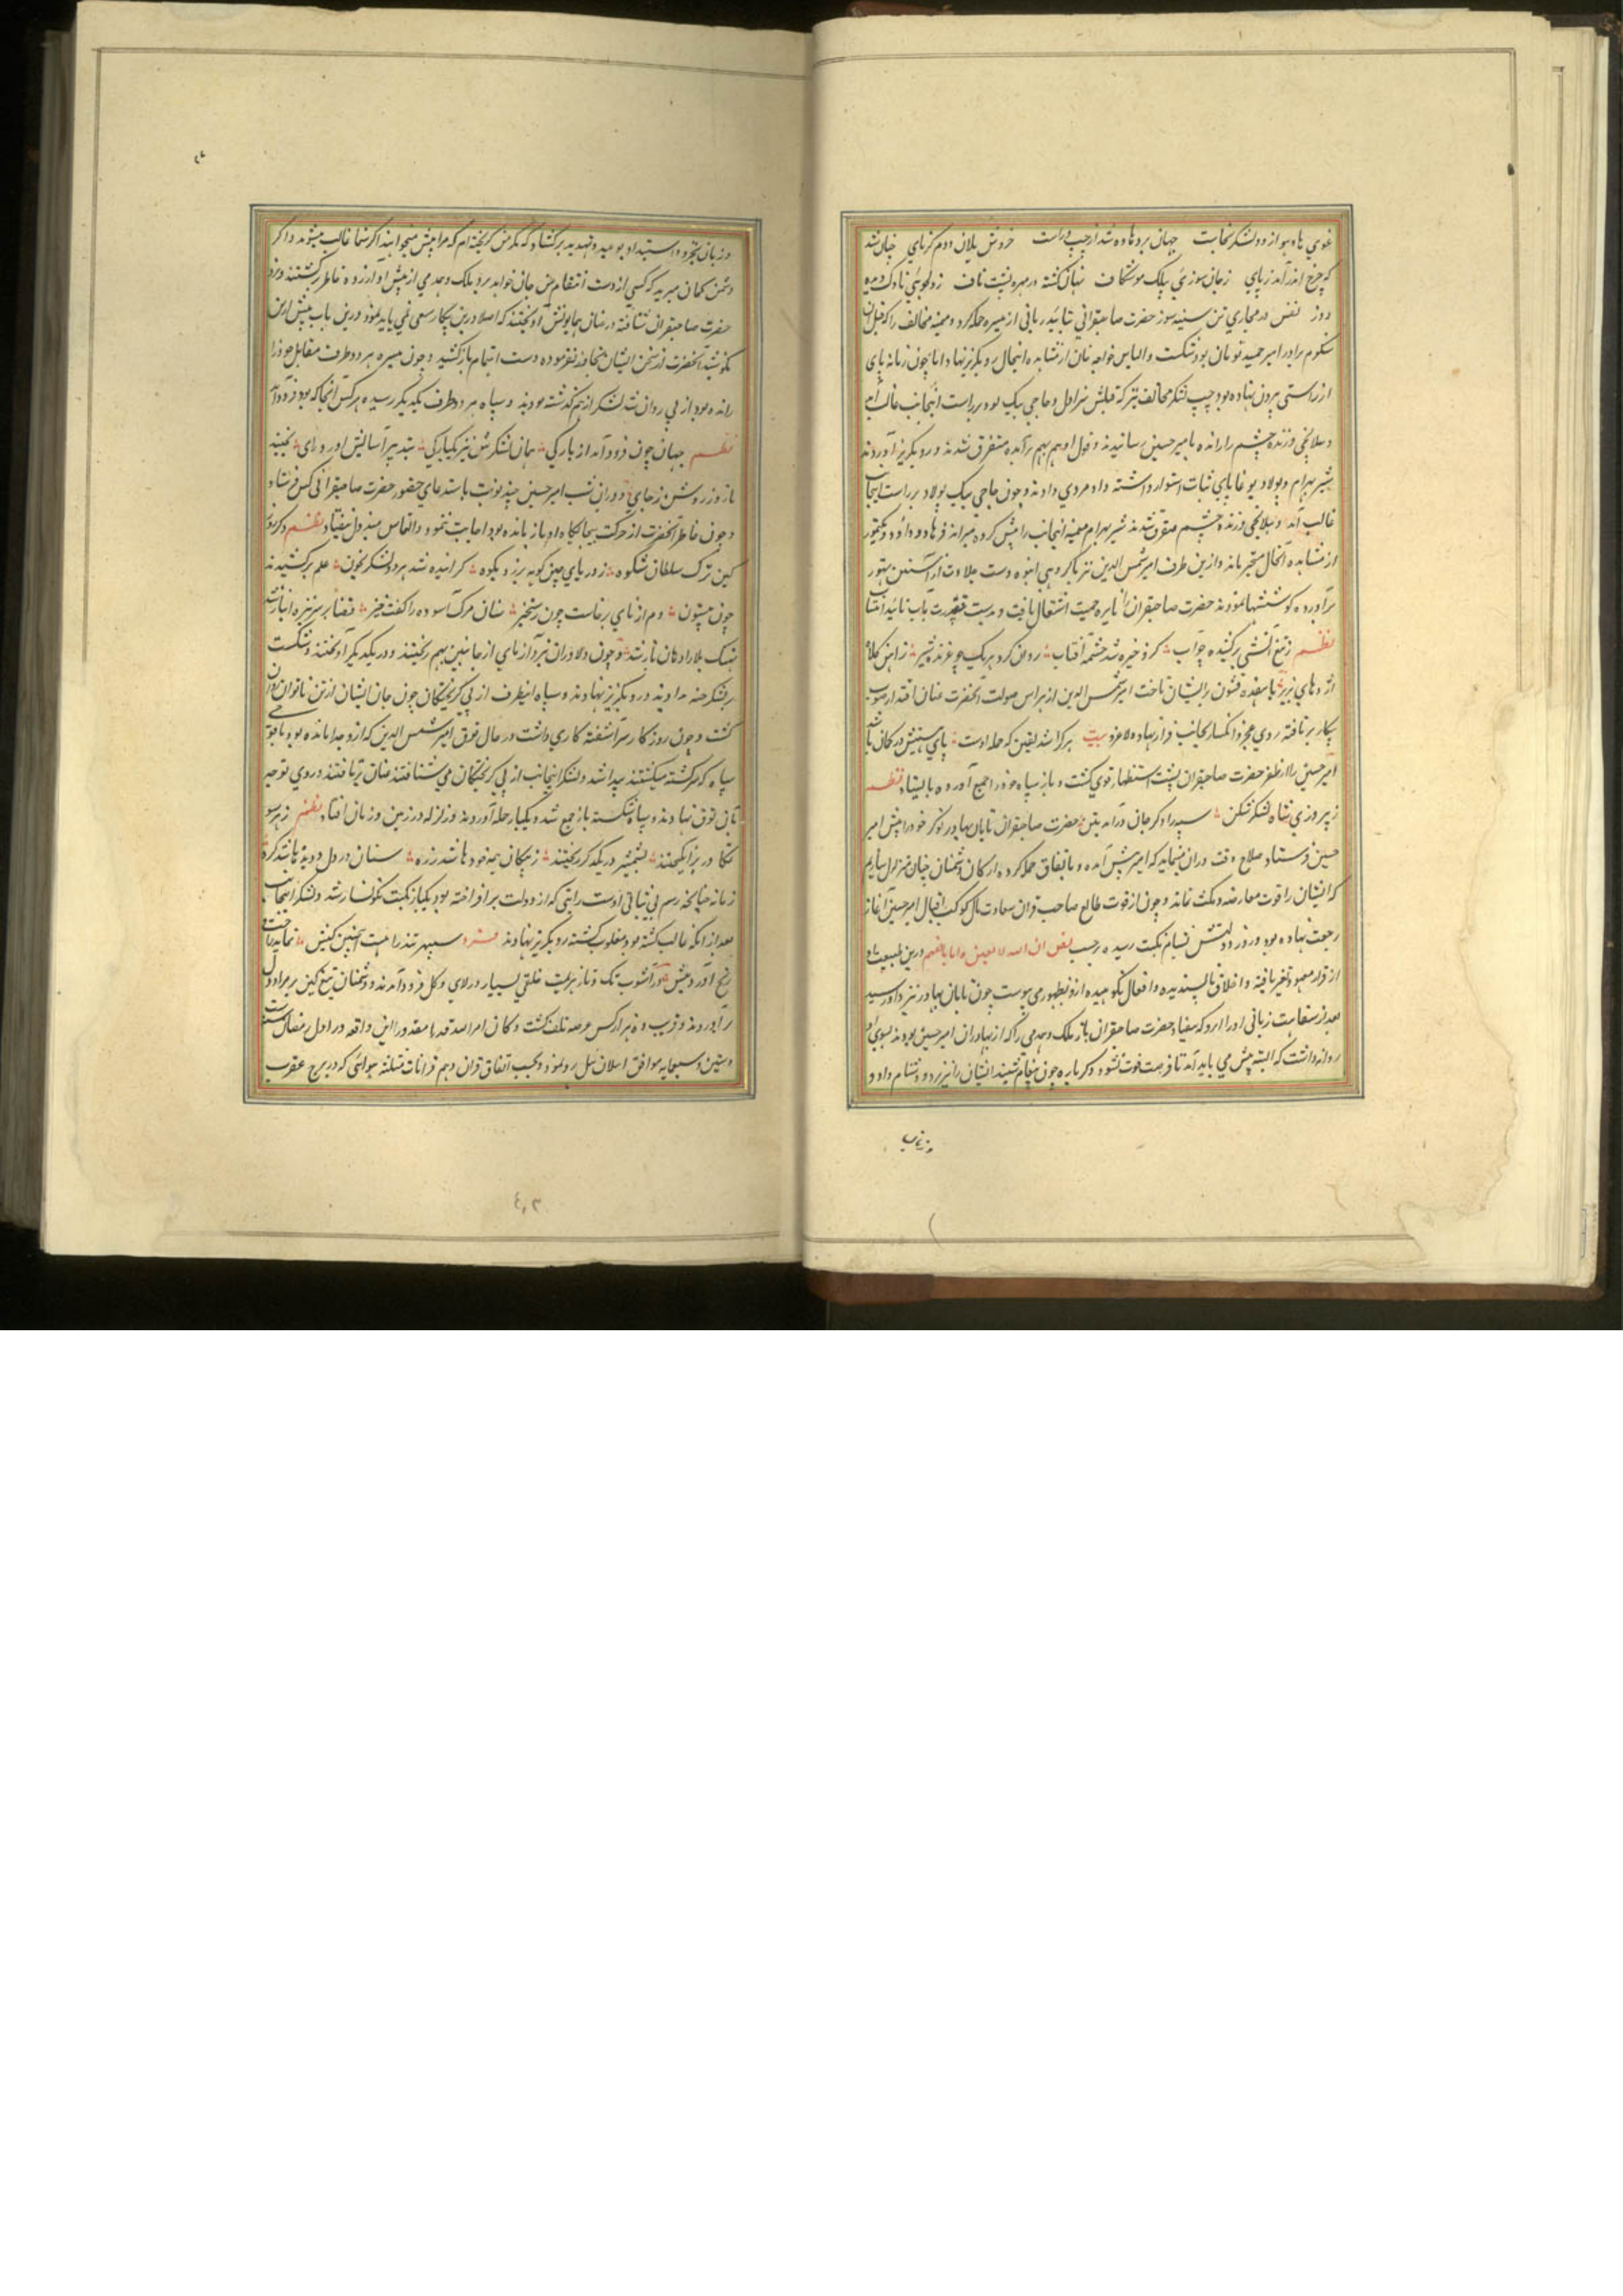 غوی هاوهو از دو لشکر بخاست جهان پر دهاده شد از چپ و راست خروش یلان و دم کرنای چنان شد
که چرخ اندر آمد ز پای ز جان سوزی بیلک موشکاف نهان کشته در مهره پشت ناف ز دلدوزی ناوک
دوز نفس در مجاری تن سینه سوز حضرت صاحبقرانی بتایید ربانی از میسره حمله کرد و میمنه مخالف را که
سکوم برادر امیر حمید تومان بود بشکست و الیاس خواجه خان از مشاهده اینحال رو بکریز نهاد اما چون زمانه پای
از راستی بیرون نهاده بود چپ لشکر مخالف نیز که قبلش شراول و حاجی بیک بود بر راست اینجانب غالب آمد
و میلانجی و زنده چشم را رانده بامیر حسین رسانیدند و قول او هم بهم برآمده متفرق شدند و رو بکریز آوردند
شیر بهرام و پولاد بوغا پای ثبات استوار داشته داد مردی دادند و چون حاجی بیک بر راست اینجانب
غالب آمد و میلانجی و زنده چشم متفرق شدند شیر بهرام میمنه اینجانب را پیش کرده میراند فرهاد و داود و بکتمور
از مشاهده آنحال متحیر ماند و ازین طرف امیر شمس الدین نیز با کروهی انبوه دست جلادت از آستین تهور
برآورده کوششها نمودند حضرت صاحبقران را نایره حمیت اشتعال یافت و بدست قدرت
نظم ز تیغ آتشی برکشیده چو آب کزو خیره شد چشمه آفتاب روان کرد هر یک چو غرنده شیر
اژدهای بزیر با هفده قشون بر ایشان تاخت امیر شمس الدین از هراس صولت آنحضرت عنان اقتدار از صوب
پیکار برتافته روی عجز و انکسار بجانب فرار نهاد ولاغرو بیت هر کرا شد یقین که حمله اوست پای هستیش در کمان باشد
امیر حسین را از ظفر حضرت صاحبقران پشت استظهار قوی کشت و باز سپاه خود را جمع آورده بایستاد نظم
ز پیروزی شاه لشکر شکن سپه را دکر جان درآمد بتن حضرت صاحبقران تابان بهادر نوکر خود را پیش امیر
حسین فرستاد صلاح وقت در آن مینماید که امیر پیش آمده و باتفاق حمله کرده ارکان دشمنان چنان متزلزل سازیم
که ایشان را قوت معارضه و مکث نماند و چون از قوت طالع صاحب قران سعادت مآل کوکب اقبال امیر حسین آغاز
رجعت نهاده بود و روز دولتش بشام نکبت رسیده برحسب نص ان الله لا یغیر ما بقوم درین طبیعت او
از قرار معهود تغیر یافته و اخلاق ناپسندیده و افعال نکوهیده ازو بظهور می پیوست چون تابان بهادر نزد او رسید
بعد از سفاهت زبانی او را زد که بیفتاد حضرت صاحبقران باز ملک و همدمی را که از بهادران امیر حسین بودند بسوی او
روانه داشت که البته پیش می باید آمد تا فرصت فوت نشود دکر باره چون پیغام شنید ایشان را نیز زد و دشنام داد و
و زبان
و زبان بتجبر و استبداد بوعید و تهدید برکشاد که مکر من کریخته ام که مرا پیش میخوانید اکر شما غالب میشوید و اکر
دشمن کمان مبرید که کسی از دست انتقام من جان خواهد برد ملک و همدمی از پیش او آزرده خاطر برکشتند و نزد
حضرت صاحبقران شتافته در عنان همایونش آویختند که اصلا درین پیکار سعی نمی باید نمود و درین باب بیش ازین
نکوشید آنحضرت از سخن ایشان تجاوز نفرموده دست اهتمام باز کشید و چون میسره هر دو طرف مقابل خود را
رانده بود از پی روان شد لشکر از هم کذشته بودند و سپاه هر دو طرف بیکدیکر رسیده هر کس آنجا که بود فرود آمد
نظم جهان چون فرود آمد از بارکی همان لشکرش نیز یکبارکی بتدبیر آسایش اورد رای نجنبید
تا روز روشن ز جای و در ان شب امیر حسین چند نوبت باستدعای حضور حضرت صاحبقرانی کس فرستاد
و چون خاطر آنحضرت از حرکت بیجایکاه او باز مانده بود اجابت ننمود و التماس مبذول نیفتاد نظم دکر روز
کین ترک سلطان شکوه ز دریای چین کوهه برزد بکوه کراینده شد هر دو لشکر بخون علم برکشیدند
چون بیستون دم از نای برخاست چون رستخیز سنان مرک آسوده را کفت خیز قضا بر سر نیزه انباز شد
نهنک بلا را دهان باز شد و چون دلاوران نبرد آزمای از جانبین بهم ریختند و در یکدیکر آویختند و شکست
بر لشکر جته دادند و رو بکریز نهادند و سپاه اینطرف از پی کریختکان چون جان ایشان از تن ناتوان روان
کشت و چون روزکار سرآشفته کاری داشت در حال توق امیر شمس الدین که ازو جدا مانده بود با فوجی
سپاه که سرکشته میکشتند پیدا شد و لشکر اینجانب از پی کریختکان می شتافتند عنان برتافتند و روی توجه
بآن توق نهادند و سپاه شکسته باز جمع شد و بیکبار حمله آوردند و زلزله در زمین و زمان افتاد نظم ز هر سو
تکاور برانکیختند بشمشیر در یکدکر ریختند ز پیکان همه خود ها شد زره سنان در دل و دیده ها شد کره
زمانه چنانچه رسم بی ثباتی اوست رایتی که از دولت برافراخته بود بیکبار نکبت نکونسار شد و لشکر اینجانب
بعد از آنکه غالب کشته بود مغلوب کشته رو بکریز نهادند فرد سپهر تند را هست اینچنین کیش نماید راحت و
رنج آورد پیش و در آشوب تک و تاز هزیمت خلقی بسیار در لای و کل فرود آمدند و دشمنان تیغ کین بر مراد دل
برآوردند و قریب ده هزار کس عرصه تلف کشت و کان امر الله قدرا مقدورا این واقعه در اول رمضان سنه
وستین و سبعمایه موافق ایلان ئیل رو نمود و بحسب اتفاق قران دهم از قرانات مثلثه هوائی که در برج عقرب